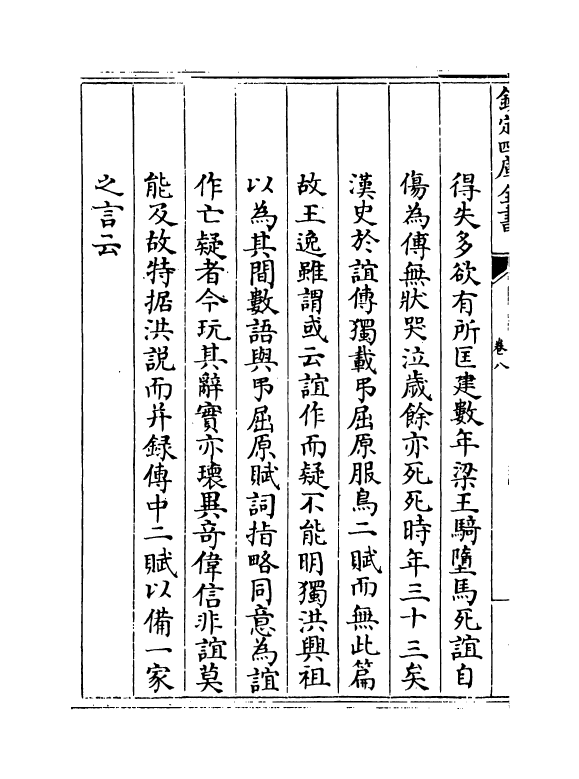 欽定四庫全書
卷八
得失多欲有所匡建數年梁王騎墮馬死誼自
傷為傅無狀哭泣歲餘亦死死時年三十三矣
漢史於誼傳獨載弔屈原服鳥二賦而無此篇
故王逸雖謂或云誼作而疑不能明獨洪興祖
以為其間數語與弔屈原賦詞指略同意為誼
作亡疑者今玩其辭實亦瓌異奇偉信非誼莫
能及故特据洪說而并錄傳中二賦以備一家
之言云